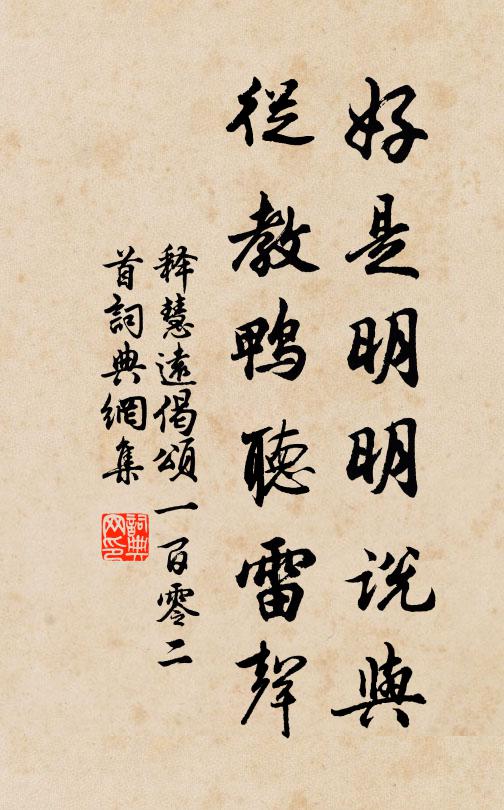 好是明明說與
從教鴨聽雷聲
釋慧遠偈頌一百零二
首詞典網集
詞典网印